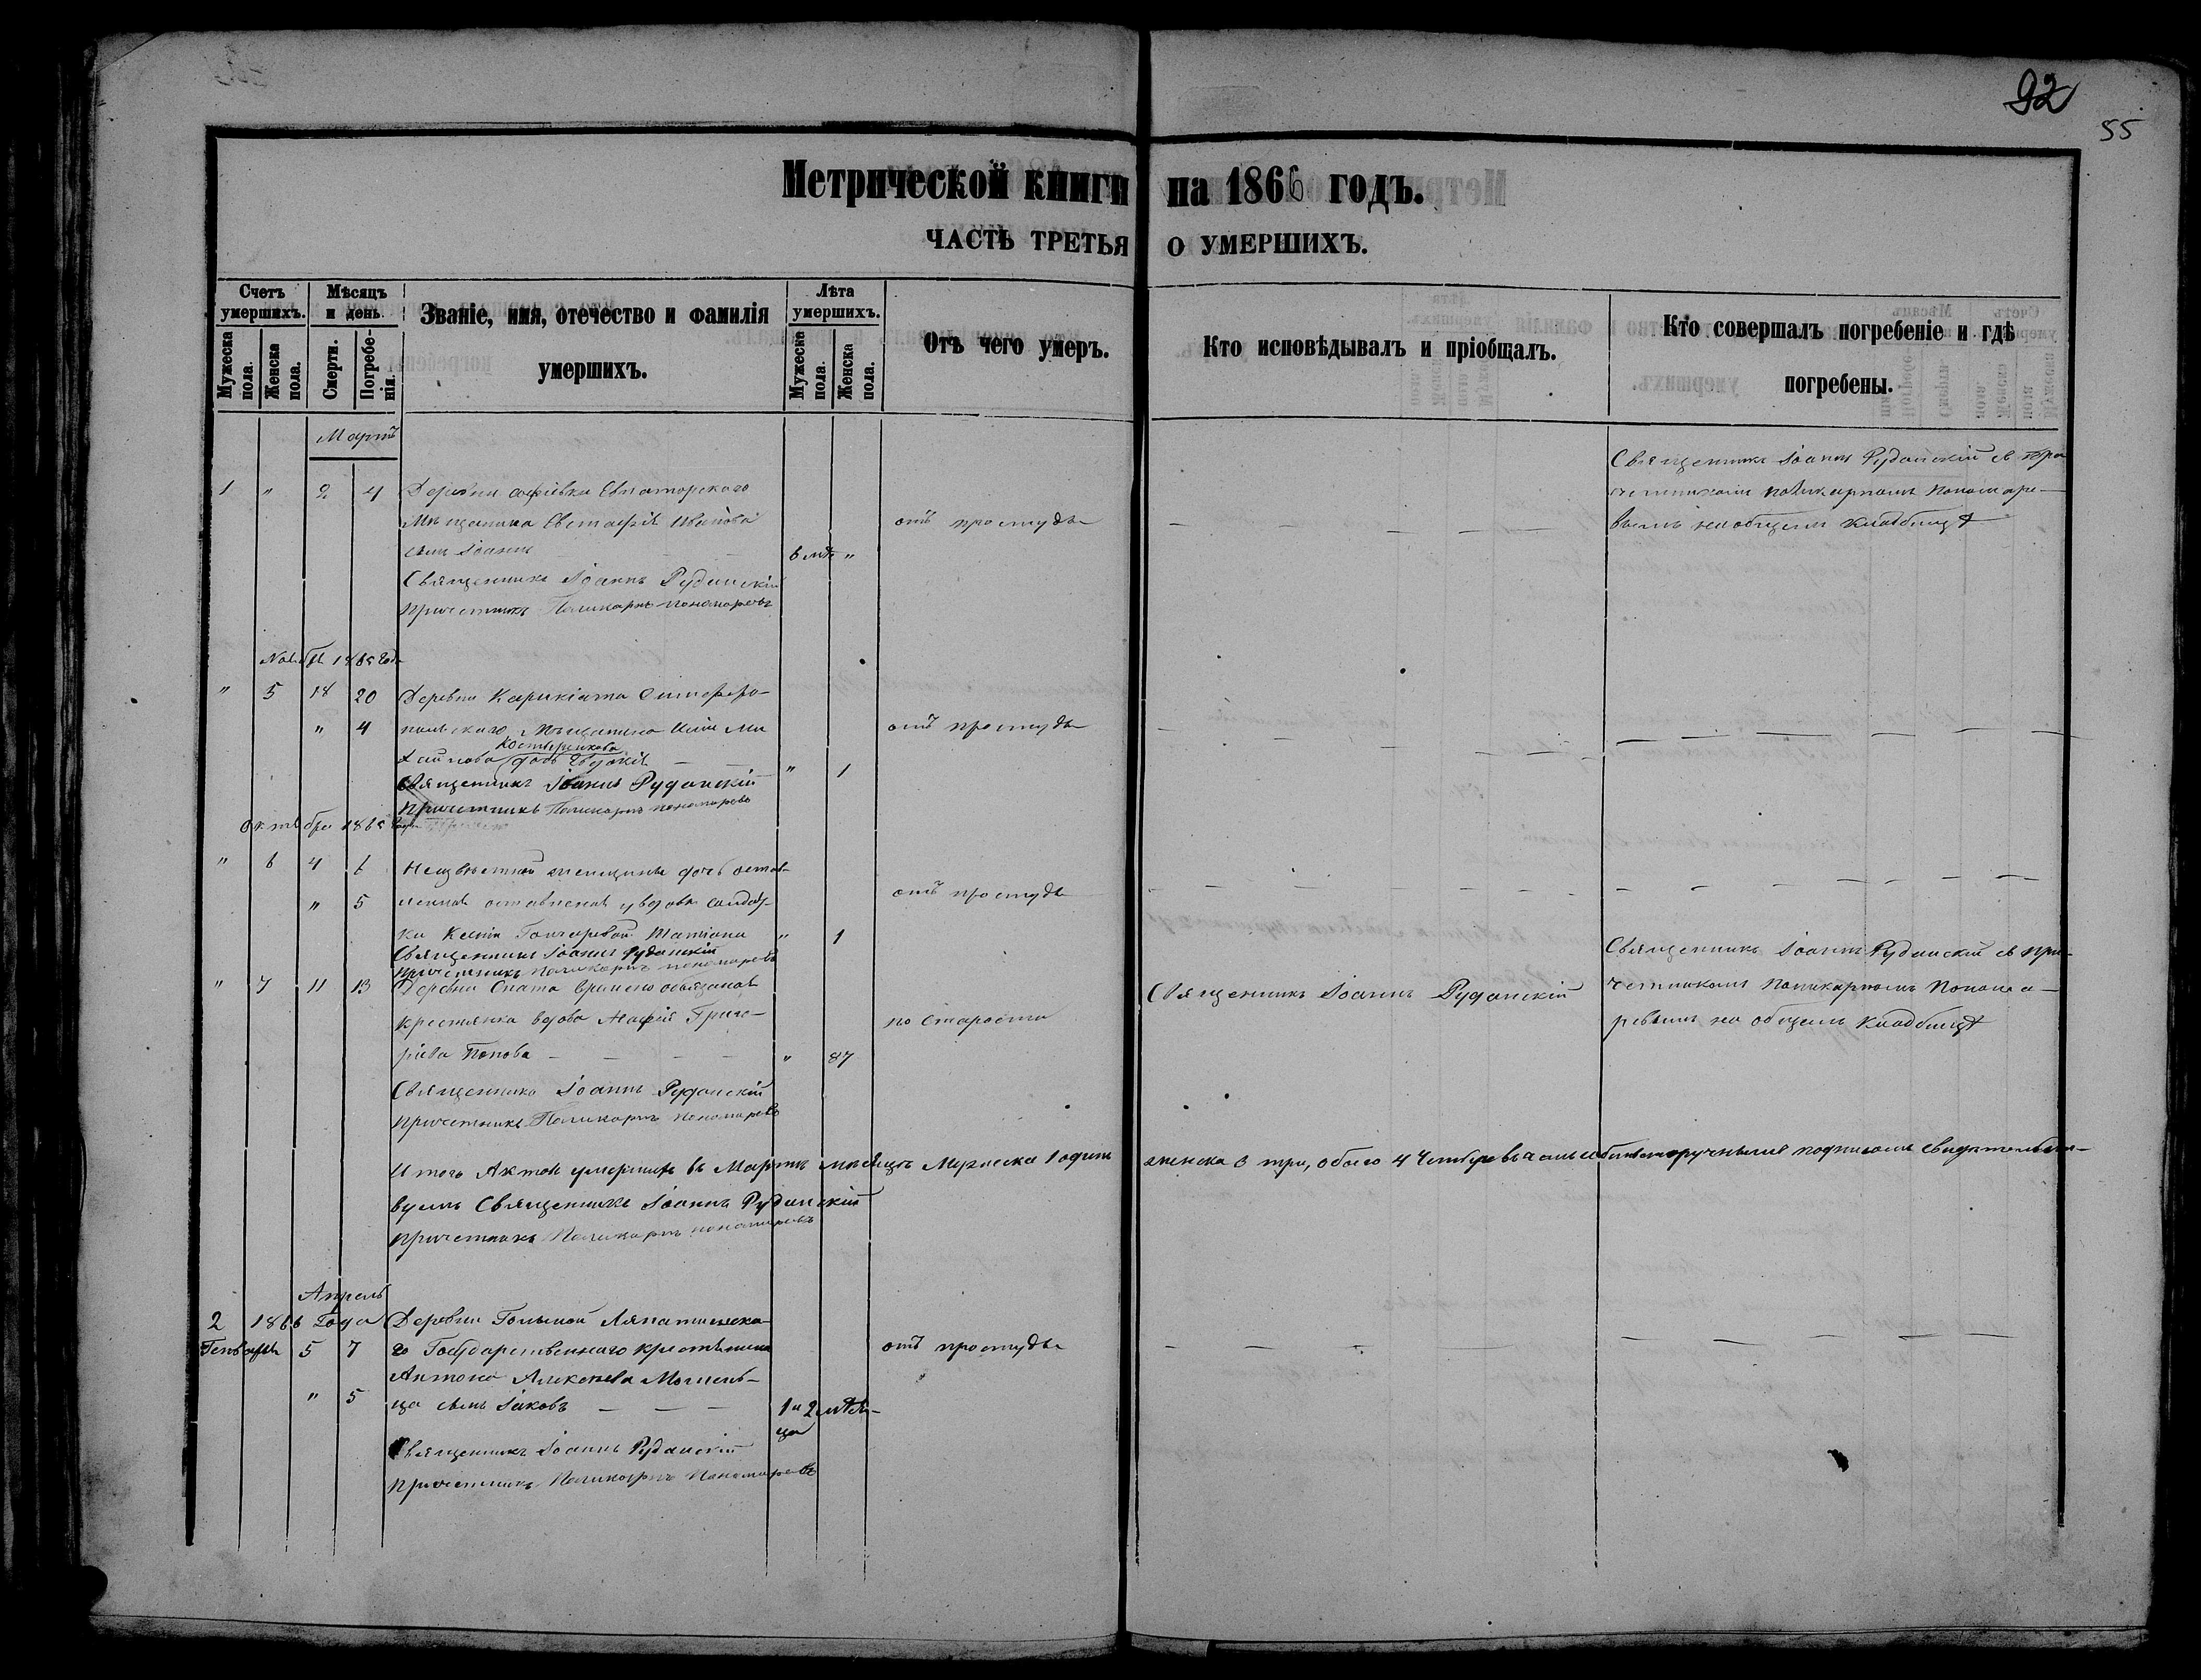 92
55
Метрической книги на 1866 годъ.
ЧАСТЬ ТРЕТЬЯ О УМЕРШИХЪ.
Счетъ умершихъ.
Мужеска пола.
Женска пола.
Мѣсяцъ и день
Смерти.
Погребенія.
Званіе, имя, отечество и фамилія
умершихъ.
Лѣта умершихъ.
Мужеска пола.
Женска пола.
Отъ чего умеръ.
Кто исповѣдывалъ и пріобщалъ.
Кто совершалъ погребеніе и гдѣ
погребены.
Мартъ
1 " 2 4 Деревни Софіевки Евпаторского
мѣщанина Евстафія Иванова
сынъ Іоаннъ
отъ простуды
Священникъ Іоаннъ Руданскій съ при
четникомъ Поликарпомъ Пономаре-
вымъ на общемъ кладбищѣ
Священникъ Іоаннъ Руданскій
Причетникъ Поликарпъ Пономаревъ
1865 года
" 5 18 20 Деревни Карикіята Симферо-
" 4 польскаго мѣщанина
дочь Евдокія " 1
отъ простуды
Священникъ Іоаннъ Руданскій
Причетникъ Поликарпъ Пономаревъ
Октября 1865 года
" 6 4 6 Неизвѣстной женщины дочь
" 5 оставленая у вдовы солдат-
ки Гончаровой Татіана " 1
отъ простуды
Священникъ Іоаннъ Руданскій
Причетникъ Поликарпъ Пономаревъ
" 7 11 13 Деревни Спата временно обязаная
крестьянка вдова Марія Григо-
рьева Попова " 87
по старости
Священникъ Іоаннъ Руданскій
Священникъ Іоаннъ Руданскій съ при-
четникомъ Поликарпомъ Понома-
ревымъ на общемъ кладбищѣ
Священникъ Іоаннъ Руданскій
Причетникъ Поликарпъ Пономаревъ
Итого умершихъ въ Мартѣ мѣсяцѣ Мужеска 1 одинъ женска 3 три, обаго 4 подписомъ свидѣтельст-
вуемъ Священникъ Іоаннъ Руданскій
Причетникъ Поликарпъ Пономаревъ
Апрель
2 1866 Года
Генваря 5 7
" 5
Деревни
го Государственнаго крестьянина
Антона Алексѣева
ца сынъ Іаковъ
1 и 2 мѣся-
ца
отъ простуды
Священникъ Іоаннъ Руданскій
Причетникъ Поликарпъ Пономаревъ